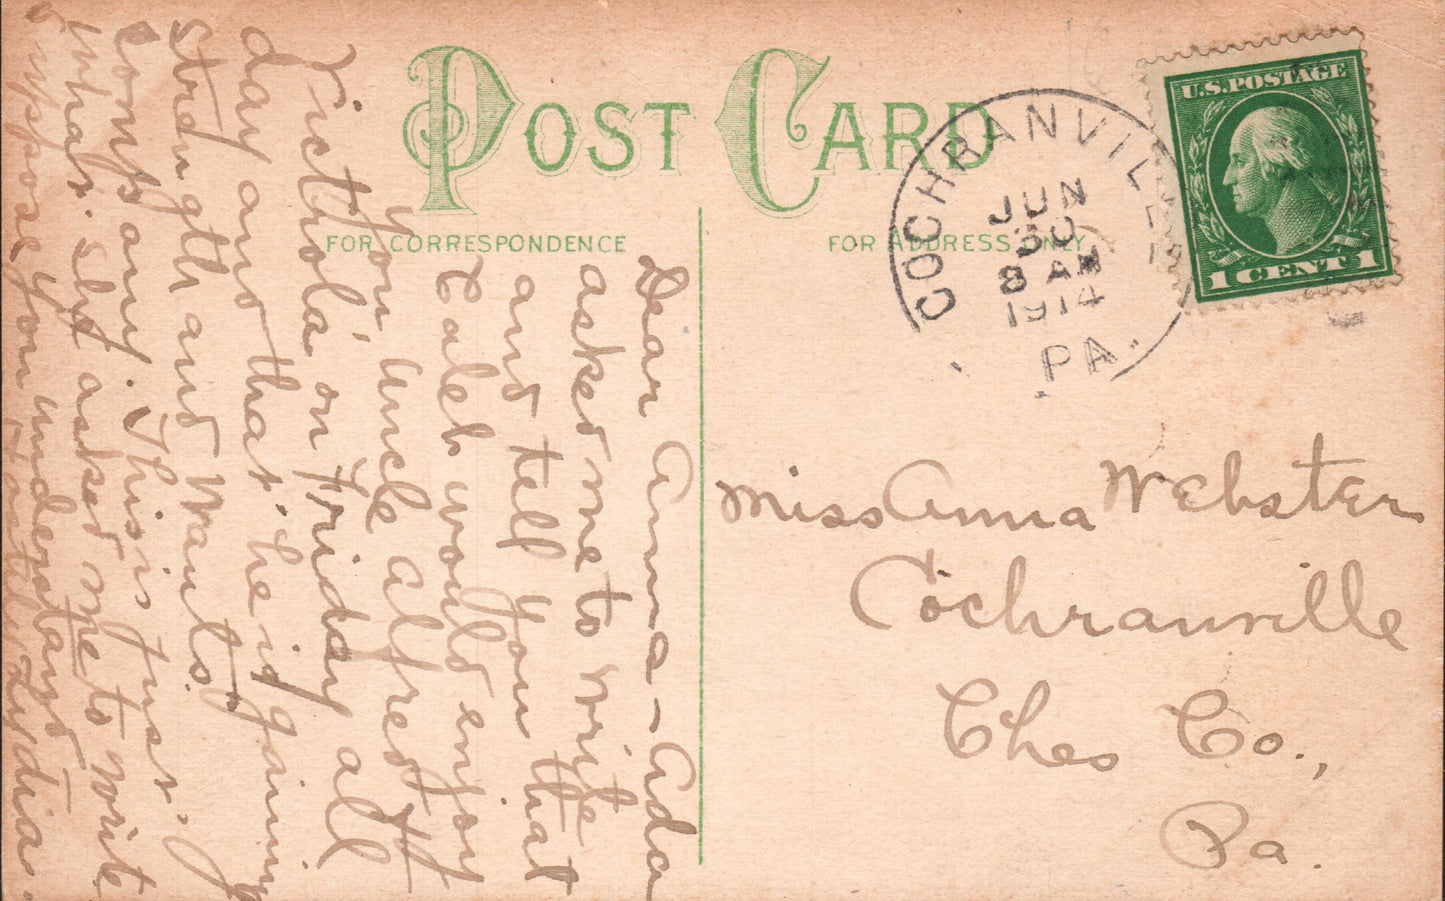 POST CARD
FOR CORRESPONDENCE
FOR ADDRESS ONLY
U.S. POSTAGE
1 CENT 1
COCHRANVILLE
JUN
30
8 AM
1914
PA.
Miss Anna Webster
Cochranville
Ches Co.,
Pa.
Dear Anna - Ada
asked me to write
and tell you that
Caleb would enjoy
your Uncle Alfred
Victrola on Friday all
day and that he is gaining
strength and wants
company. This is just
what she asked me to write
suppose you understand
Lydia.